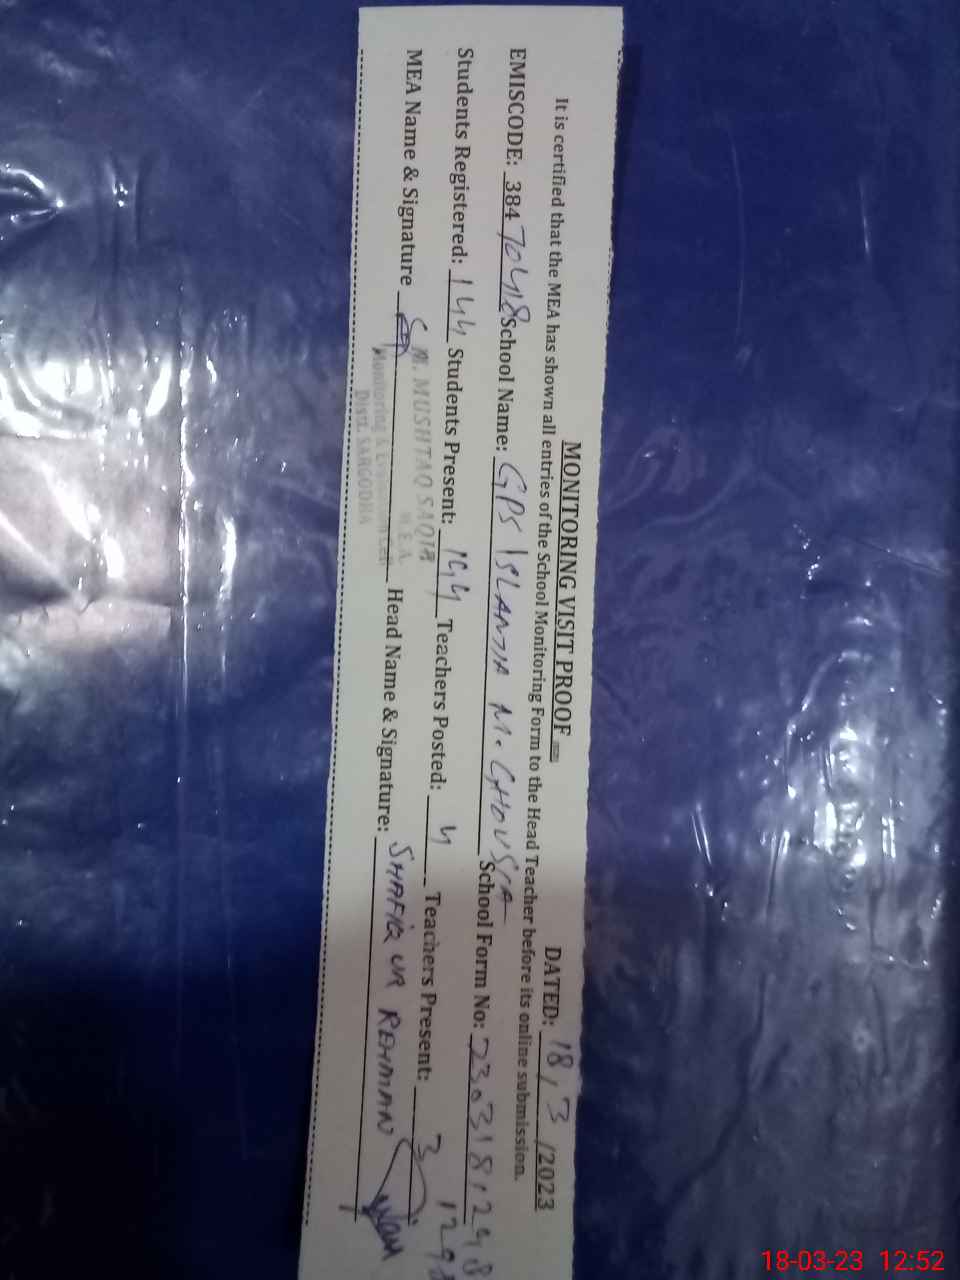 MONITORING VISIT PROOF DATED: 18/3/2023
It is certified that the MEA has shown all entries of the School Monitoring Form to the Head Teacher before its online submission.
EMISCODE: 38470418 School Name: GPS ISLAMIA M. GHOUSIA School Form No:
Students Registered: 144 Students Present: Teachers Posted: 4 Teachers Present: 3
MEA Name & Signature Head Name & Signature: SHAFIQ UR REHMAN
M. MUSHTAQ SAQIB
M.E.A.
Monitoring & Cell
Distt. SARGODHA
18-03-23 12:52